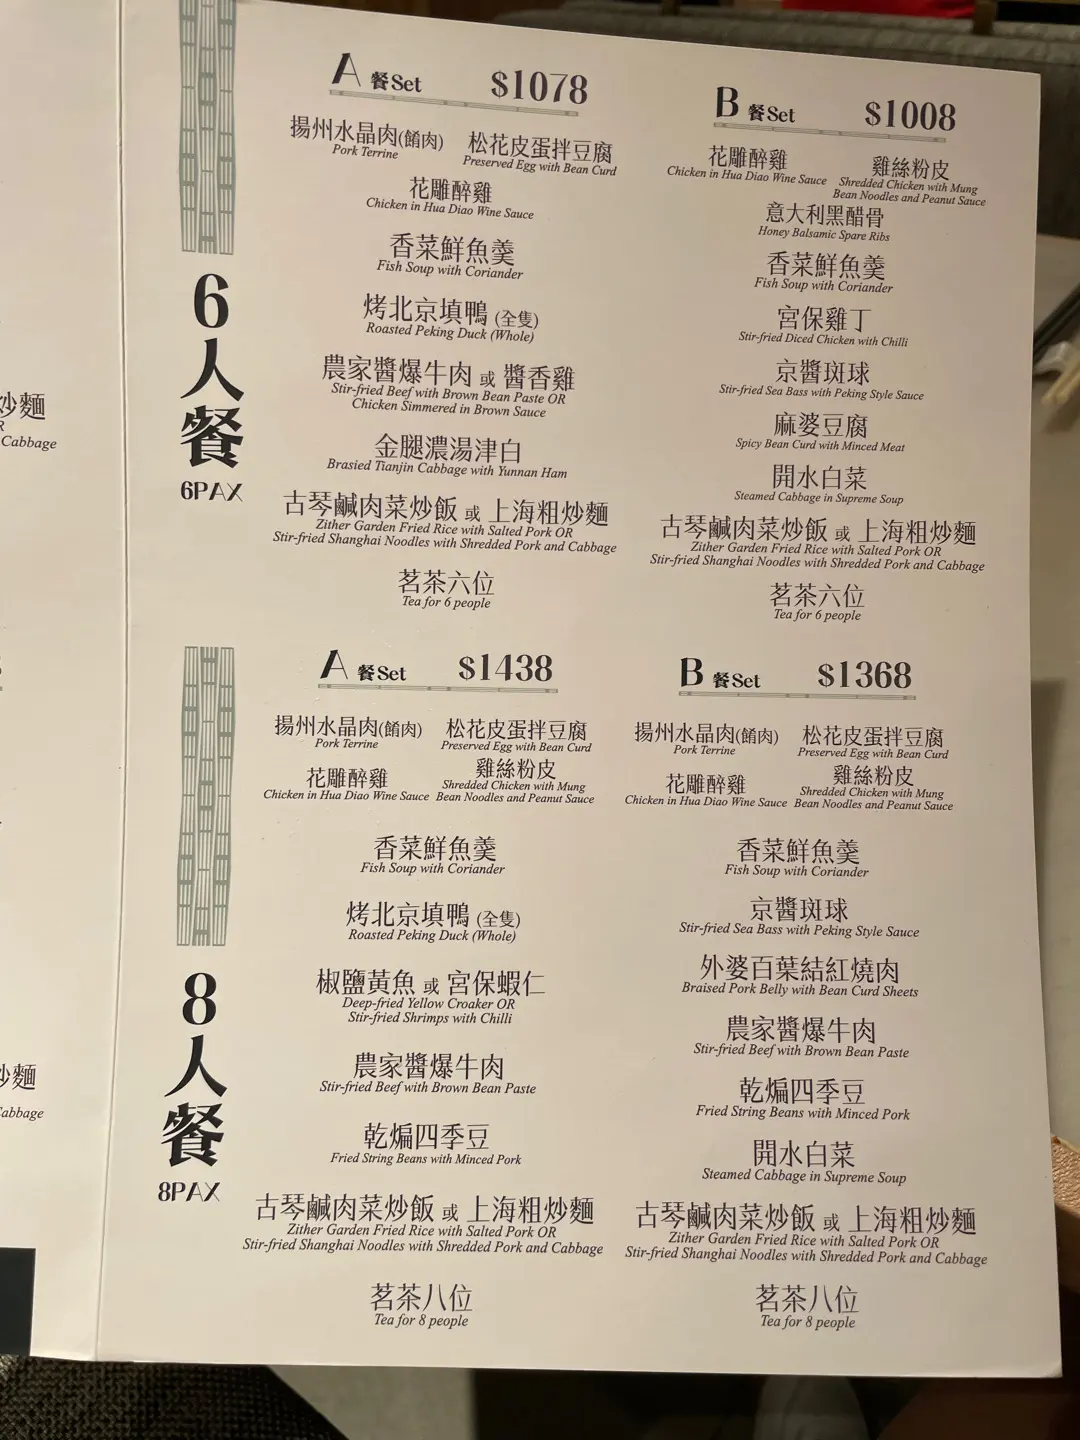 炒麵
R
Cabbage
炒麵
Cabbage
6
人
餐
6PAX
A 餐Set $1078
揚州水晶肉(餚肉)
Pork Terrine
松花皮蛋拌豆腐
Preserved Egg with Bean Curd
花雕醉雞
Chicken in Hua Diao Wine Sauce
香菜鮮魚羹
Fish Soup with Coriander
烤北京填鴨 (全隻)
Roasted Peking Duck (Whole)
農家醬爆牛肉 或 醬香雞
Stir-fried Beef with Brown Bean Paste OR
Chicken Simmered in Brown Sauce
金腿濃湯津白
Brasied Tianjin Cabbage with Yunnan Ham
古琴鹹肉菜炒飯 或 上海粗炒麵
Zither Garden Fried Rice with Salted Pork OR
Stir-fried Shanghai Noodles with Shredded Pork and Cabbage
茗茶六位
Tea for 6 people
B 餐Set $1008
花雕醉雞
Chicken in Hua Diao Wine Sauce
雞絲粉皮
Shredded Chicken with Mung
Bean Noodles and Peanut Sauce
意大利黑醋骨
Honey Balsamic Spare Ribs
香菜鮮魚羹
Fish Soup with Coriander
宮保雞丁
Stir-fried Diced Chicken with Chilli
京醬斑球
Stir-fried Sea Bass with Peking Style Sauce
麻婆豆腐
Spicy Bean Curd with Minced Meat
開水白菜
Steamed Cabbage in Supreme Soup
古琴鹹肉菜炒飯 或 上海粗炒麵
Zither Garden Fried Rice with Salted Pork OR
Stir-fried Shanghai Noodles with Shredded Pork and Cabbage
茗茶六位
Tea for 6 people
8
人
餐
8PAX
A 餐Set $1438
揚州水晶肉(餚肉)
Pork Terrine
松花皮蛋拌豆腐
Preserved Egg with Bean Curd
花雕醉雞
Chicken in Hua Diao Wine Sauce
雞絲粉皮
Shredded Chicken with Mung
Bean Noodles and Peanut Sauce
香菜鮮魚羹
Fish Soup with Coriander
烤北京填鴨 (全隻)
Roasted Peking Duck (Whole)
椒鹽黃魚 或 宮保蝦仁
Deep-fried Yellow Croaker OR
Stir-fried Shrimps with Chilli
農家醬爆牛肉
Stir-fried Beef with Brown Bean Paste
乾煸四季豆
Fried String Beans with Minced Pork
古琴鹹肉菜炒飯 或 上海粗炒麵
Zither Garden Fried Rice with Salted Pork OR
Stir-fried Shanghai Noodles with Shredded Pork and Cabbage
茗茶八位
Tea for 8 people
B 餐Set $1368
揚州水晶肉(餚肉)
Pork Terrine
松花皮蛋拌豆腐
Preserved Egg with Bean Curd
花雕醉雞
Chicken in Hua Diao Wine Sauce
雞絲粉皮
Shredded Chicken with Mung
Bean Noodles and Peanut Sauce
香菜鮮魚羹
Fish Soup with Coriander
京醬斑球
Stir-fried Sea Bass with Peking Style Sauce
外婆百葉結紅燒肉
Braised Pork Belly with Bean Curd Sheets
農家醬爆牛肉
Stir-fried Beef with Brown Bean Paste
乾煸四季豆
Fried String Beans with Minced Pork
開水白菜
Steamed Cabbage in Supreme Soup
古琴鹹肉菜炒飯 或 上海粗炒麵
Zither Garden Fried Rice with Salted Pork OR
Stir-fried Shanghai Noodles with Shredded Pork and Cabbage
茗茶八位
Tea for 8 people